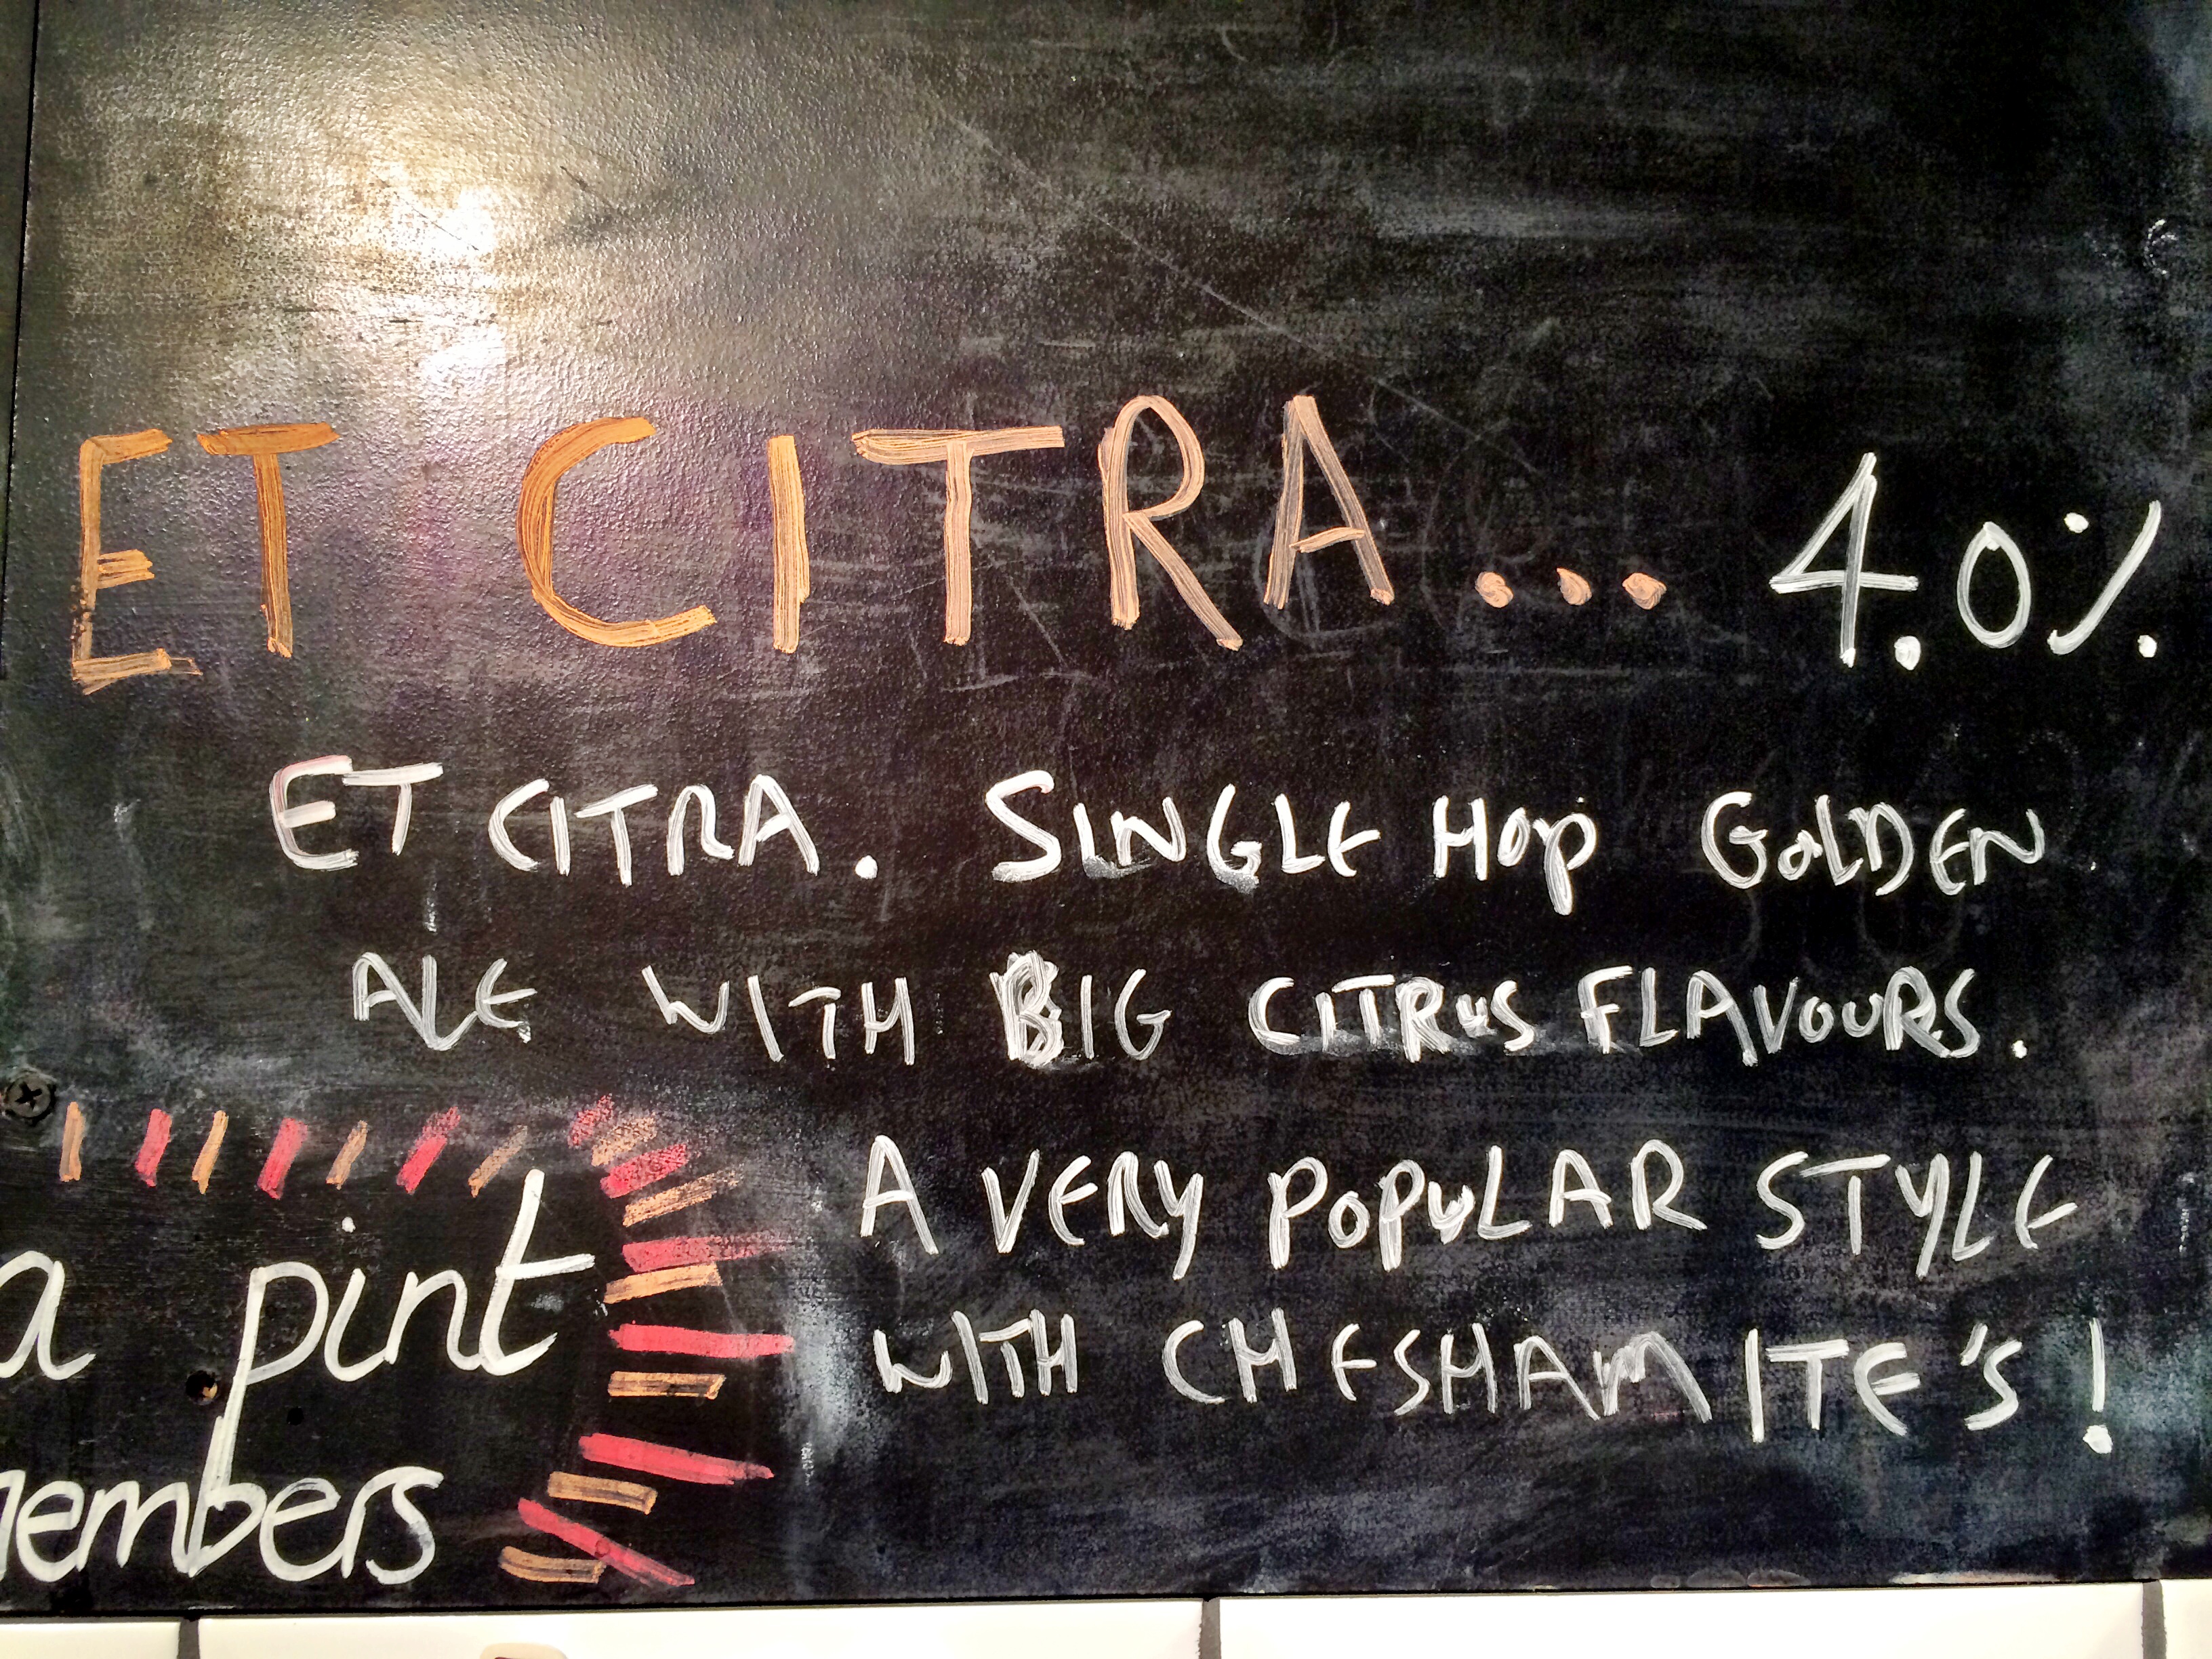 ET CITRA... 4.0%.
ET CITRA. SINGLE HOP GOLDEN
ALE WITH BIG CITRUS FLAVOURS.
A VERY POPULAR STYLE
WITH CHESHAMITE'S!
a pint